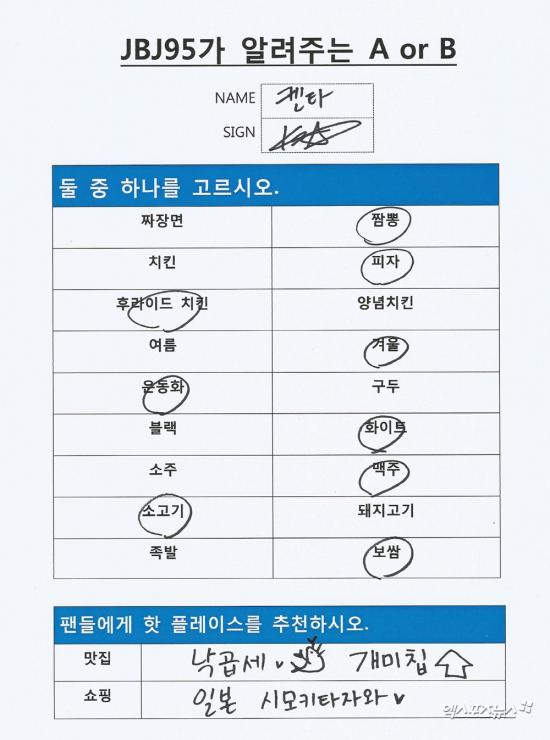 JBJ95가 알려주는 A or B
NAME 켄타
SIGN
둘 중 하나를 고르시오.
짜장면 짬뽕
치킨 피자
후라이드 치킨 양념치킨
여름 겨울
운동화 구두
블랙 화이트
소주 맥주
소고기 돼지고기
족발 보쌈
팬들에게 핫 플레이스를 추천하시오.
맛집 낙곱세 개미집
쇼핑 일본 시모키타자와
엑스포츠뉴스